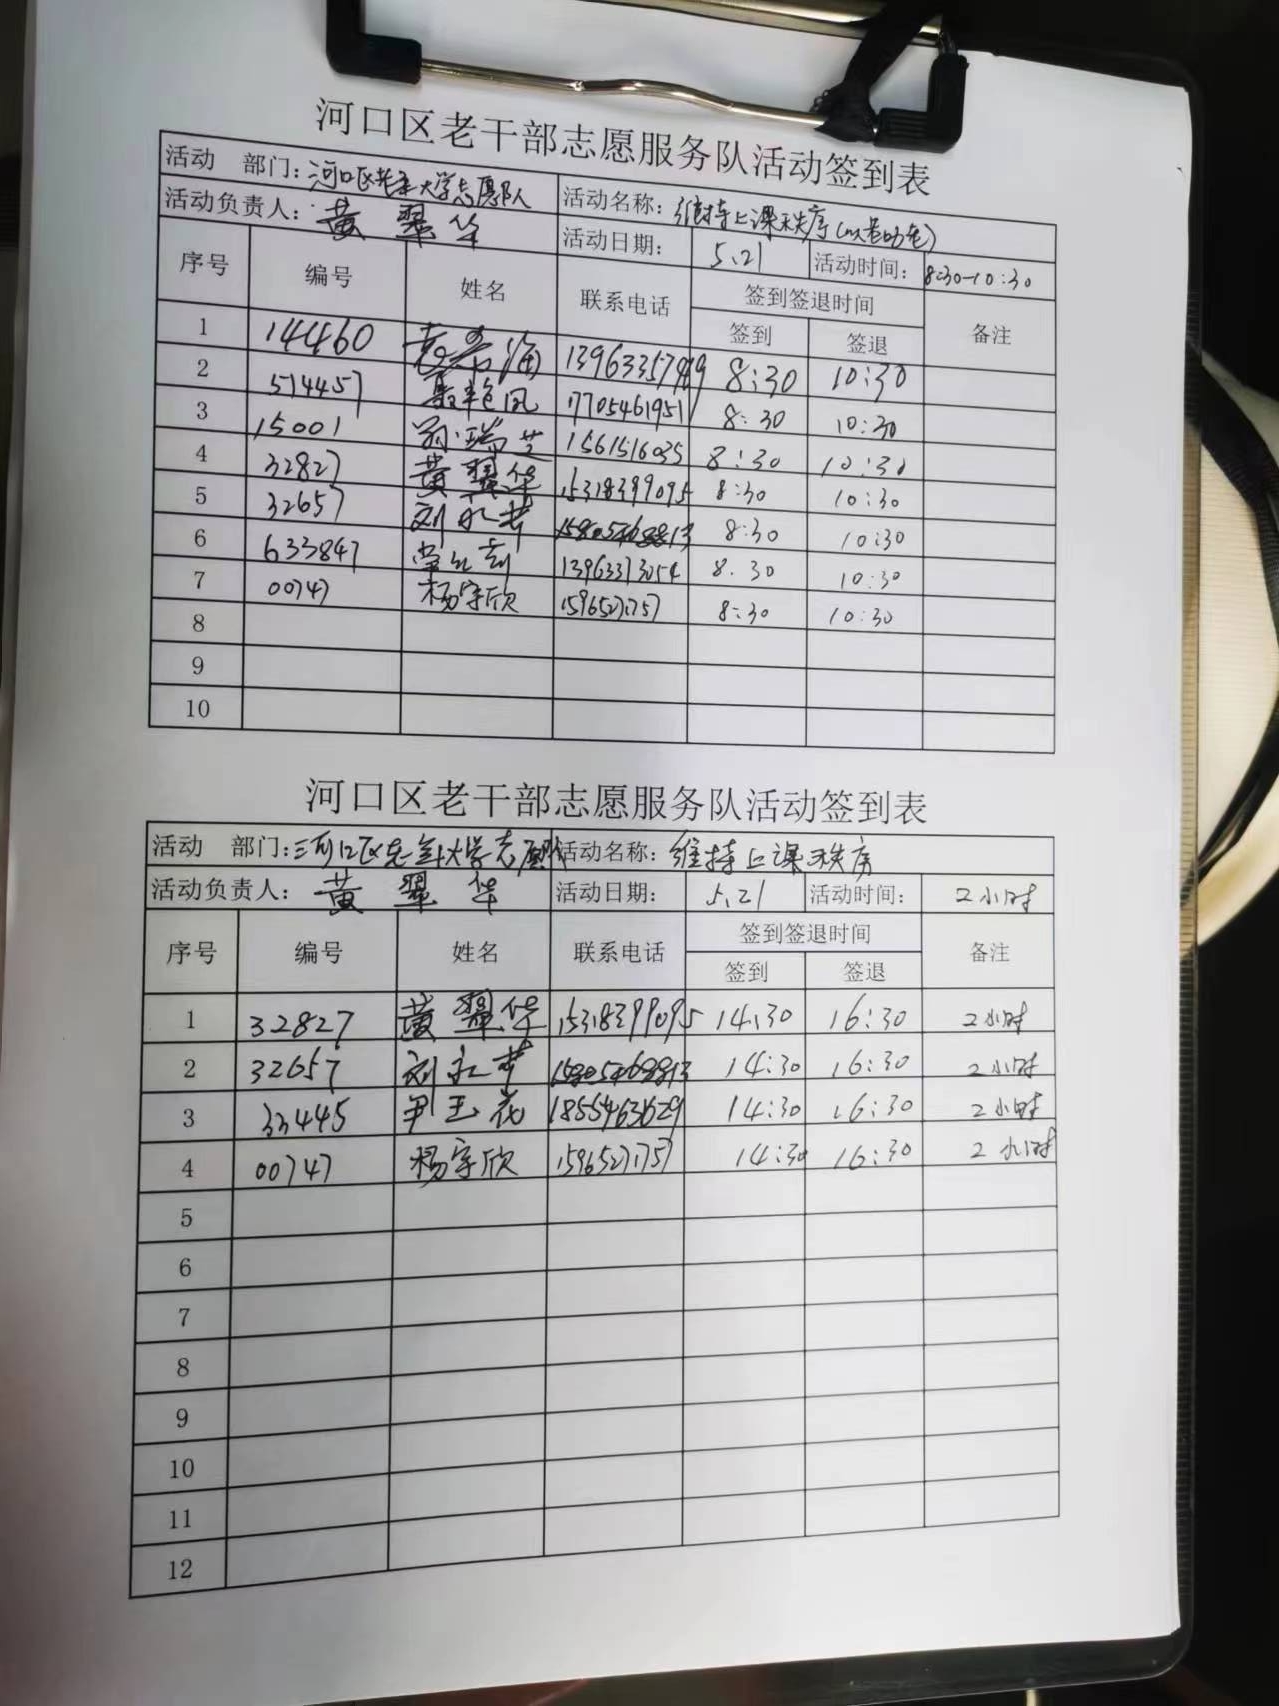 河口区老干部志愿服务队活动签到表
活动 部门：河口区老年大学志愿队 活动名称：维持上课秩序
活动负责人：黄翠华 活动日期： 5.21 活动时间：8:30-10:30
序号 编号 姓名 联系电话 签到签退时间 备注
签到 签退
1 14460 8:30 10:30
2 514457 17705461951 8:30 10:30
3 15001 孙瑞芝 1561516035 8:30 10:30
4 32827 黄翠华 15318399095 8:30 10:30
5 32657 8:30 10:30
6 633847 13963373054 8.30 10:30
7 00747 杨字欣 8:30 10:30
8
9
10
河口区老干部志愿服务队活动签到表
活动 部门：河口区老年大学志愿队 活动名称：维持上课秩序
活动负责人：黄翠华 活动日期： 5.21 活动时间： 2小时
序号 编号 姓名 联系电话 签到签退时间 备注
签到 签退
1 32827 黄翠华 15318399095 14:30 16:30 2小时
2 32657 14:30 16:30 2小时
3 33445 尹玉花 1855463629 14:30 16:30 2小时
4 00747 杨字欣 14:30 16:30 2小时
5
6
7
8
9
10
11
12